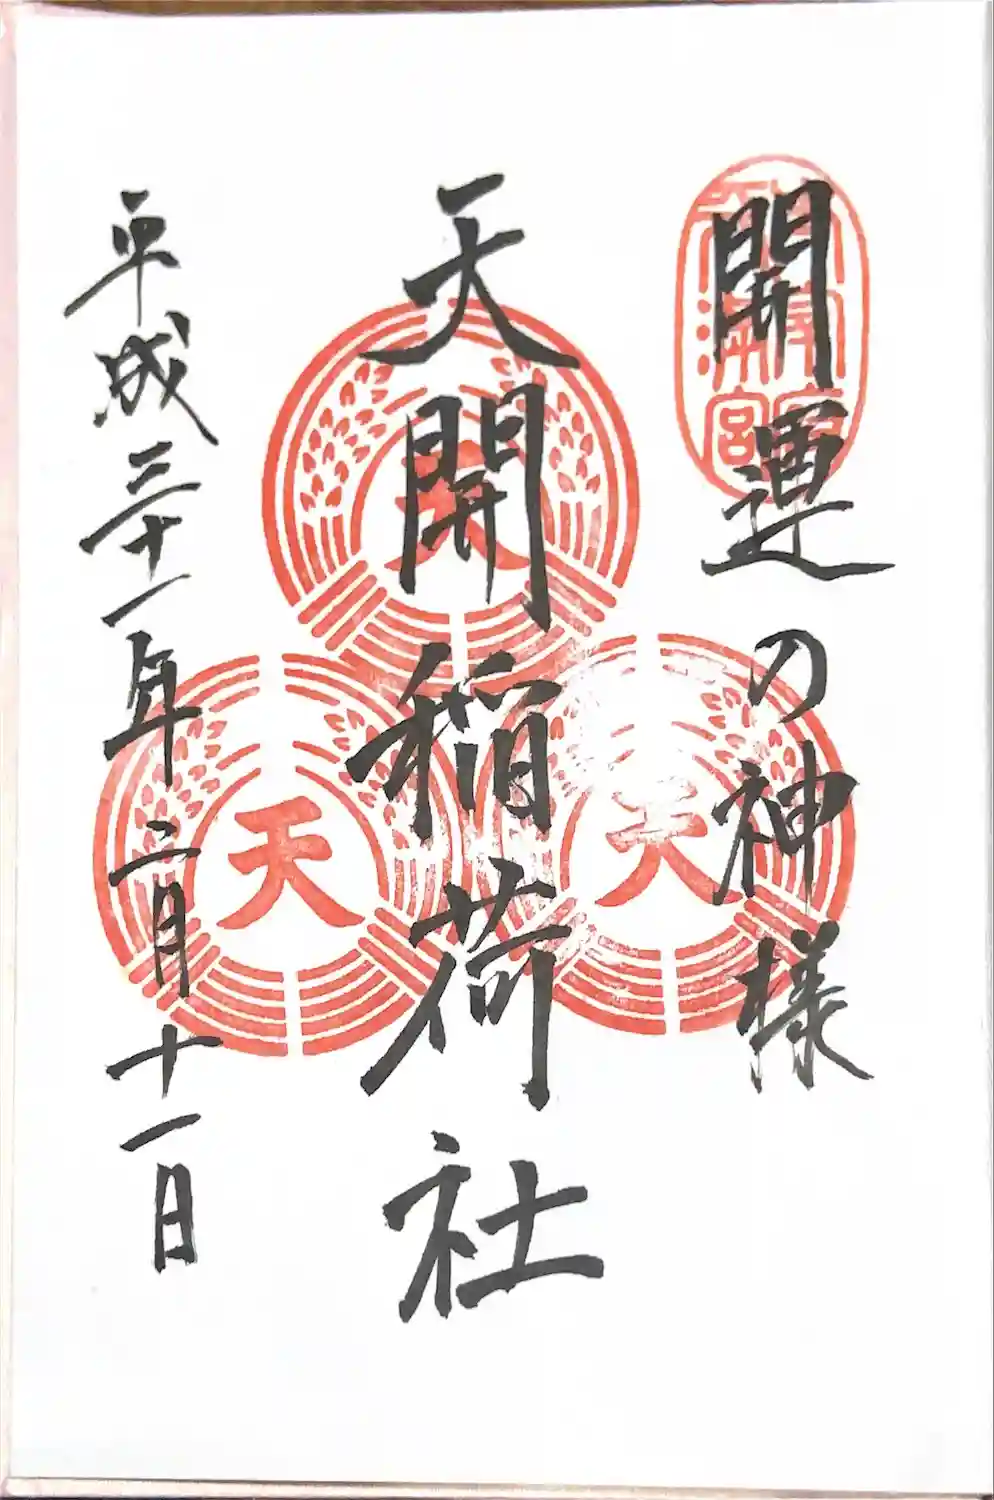 開運の神様
天開稲荷社
平成三十一年二月十一日
天
天
天